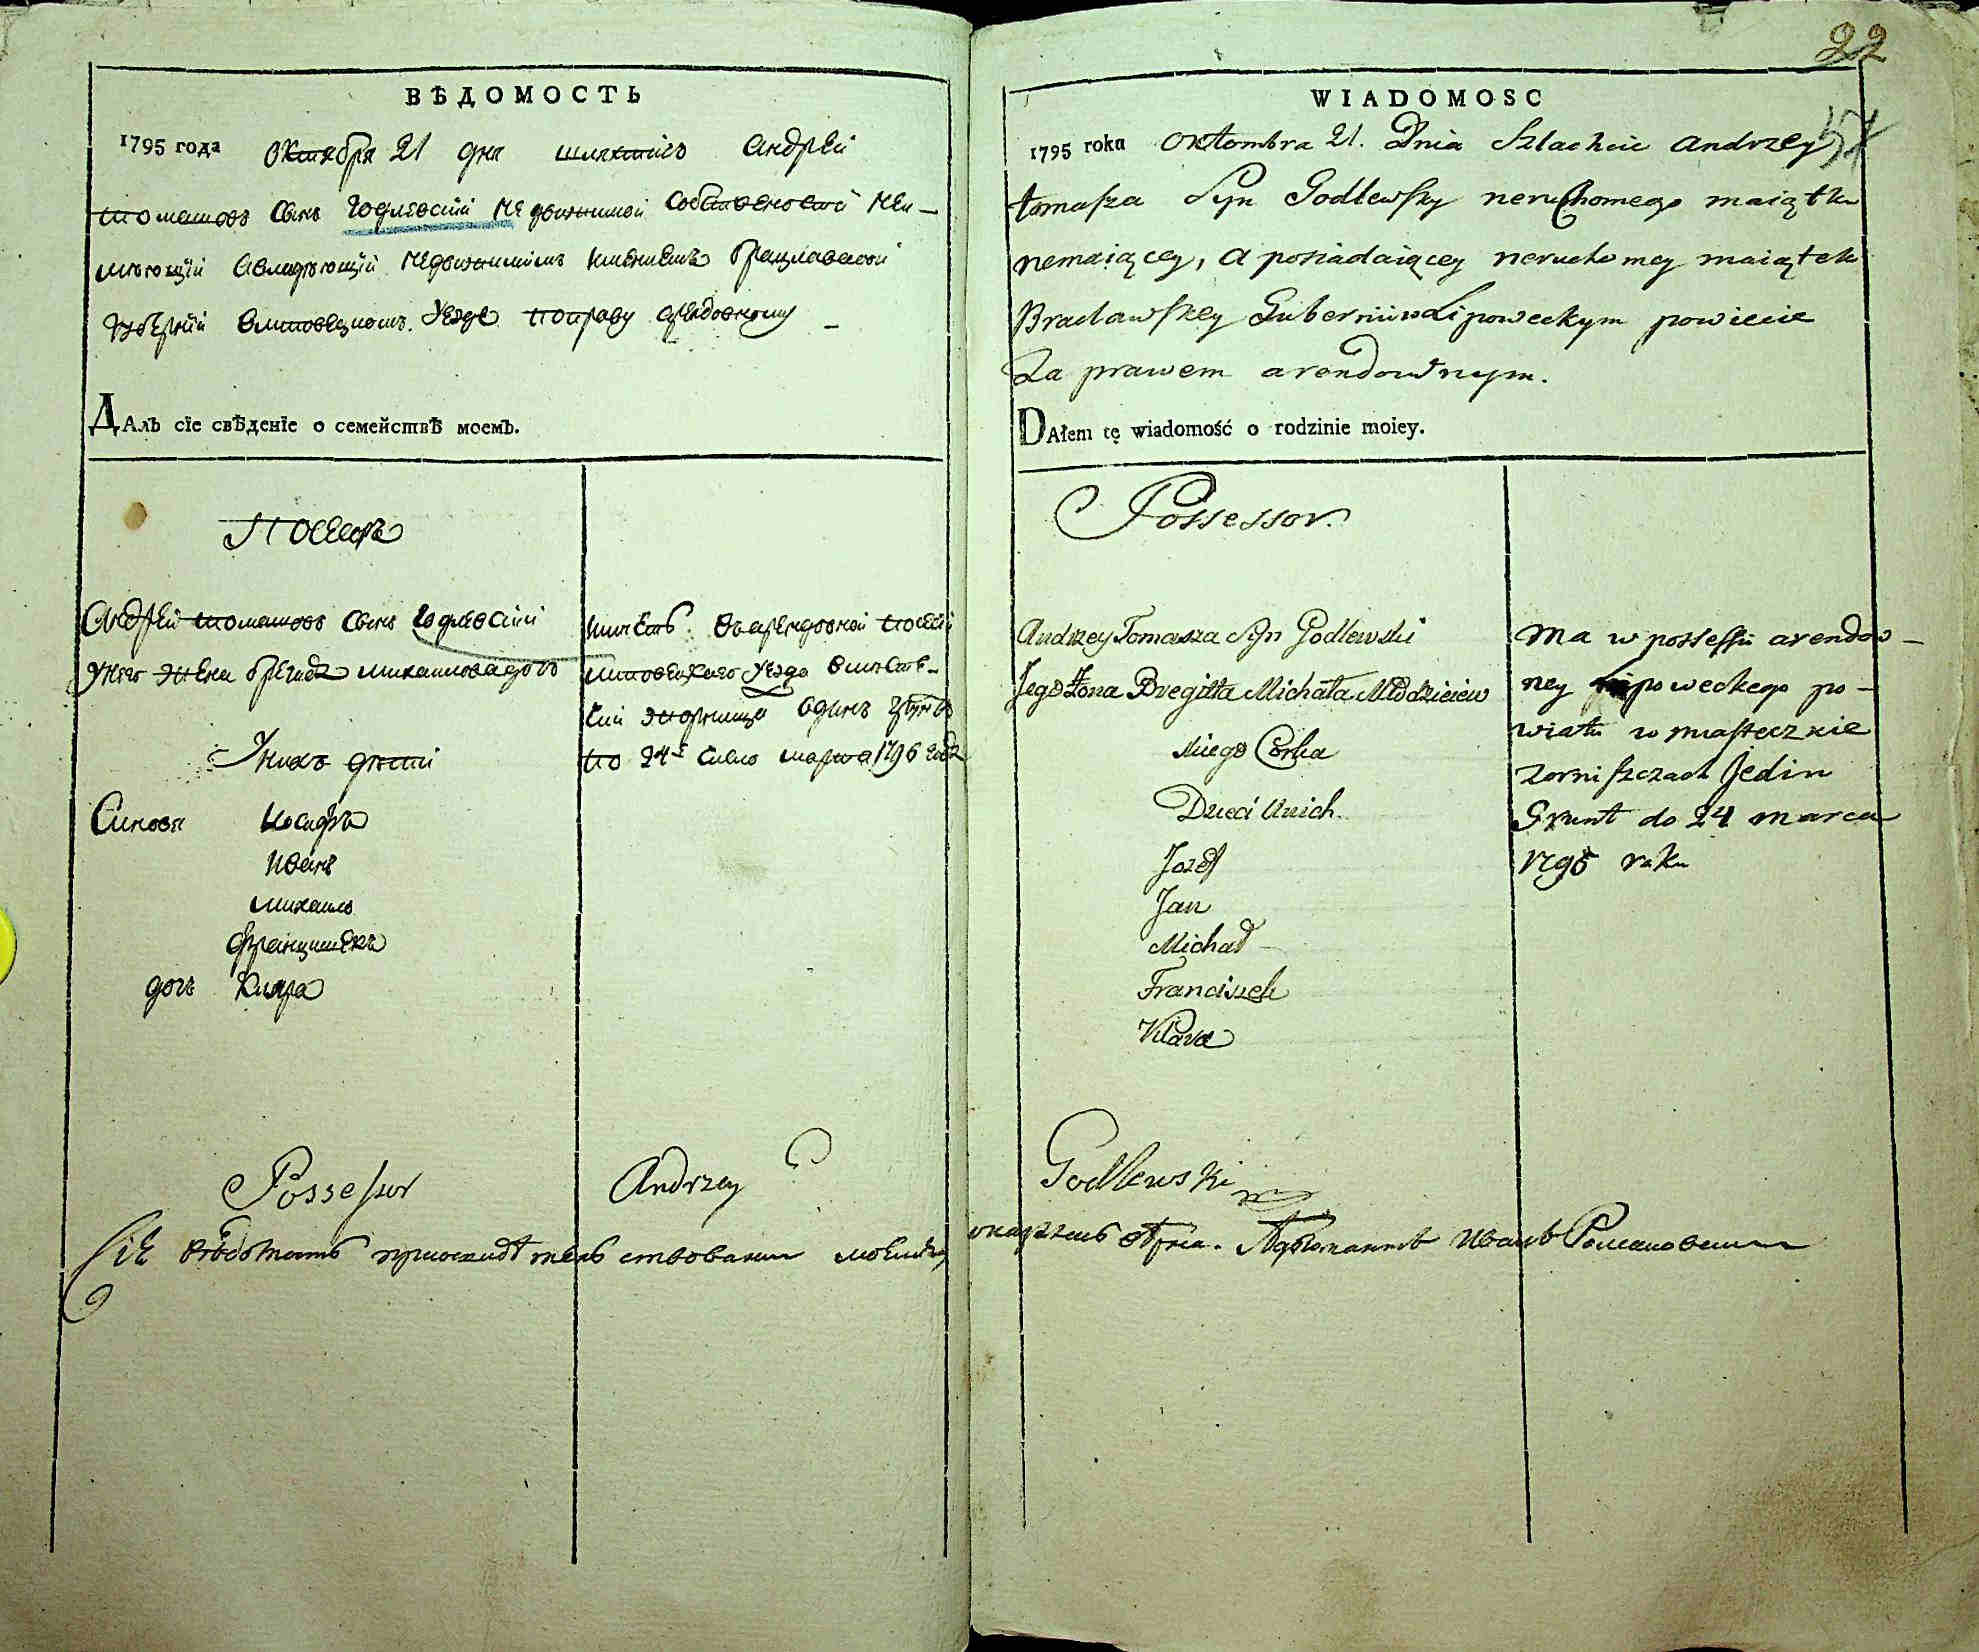 ВѢДОМОСТЬ
1795 года октября 21 дня шляхтичь Андрей
Томашовъ сынъ Годлевскій недвижимой собственостй неи-
меющій Авладеющій недвижимимъ имениемъ Брацлавской
Губерній влиповецкомъ уезде поправу арендовному
ДАлЪ сїе свѢденїе о семействѢ моемЪ.
Посесоръ
Андрей Томашовъ сынъ Годлевскій
Унего жена Брегида Михаиловадочь
Унихъ дети
Синовя Иосифъ
Иванъ
Михаилъ
Францишекъ
дочь Кляра
имеетъ варендовной посесій
липовецкаго уезда вместе-
чкй зорнищахъ одинъ грунтъ
по 24е число марта 1796 года
Possessor Andrzey
22
57
WIADOMOSC
1795 roku Oktombra 21. Dnia Szlachcic Andrzey
Tomasza Syn Godlewsky neruchomego maiątku
nemaiącey, a posiadaiącey neruchomey maiątek
Braclawskey Gubernii w Lipoweckym powiecie
Za prawem arendownym.
DAłem tę wiadomość o rodzinie moiey.
Possessor.
Andrzey Tomasza Syn Godlewski
Jego Żona Bregitta Michała Młodzieiow
skiego Córka
Dzieci Unich.
Jozef
Jan
Michał
Franciszek
Klara
Ma w possessii arendow-
ney Lipoweckego po-
wiatu w miasteczkie
zorniszczach Jedin
Grunt do 24 marca
1796 roku
Godlewski
Сіе ведомость присвидетельствовании моемъ оказалась верна. Иванъ Романовичъ